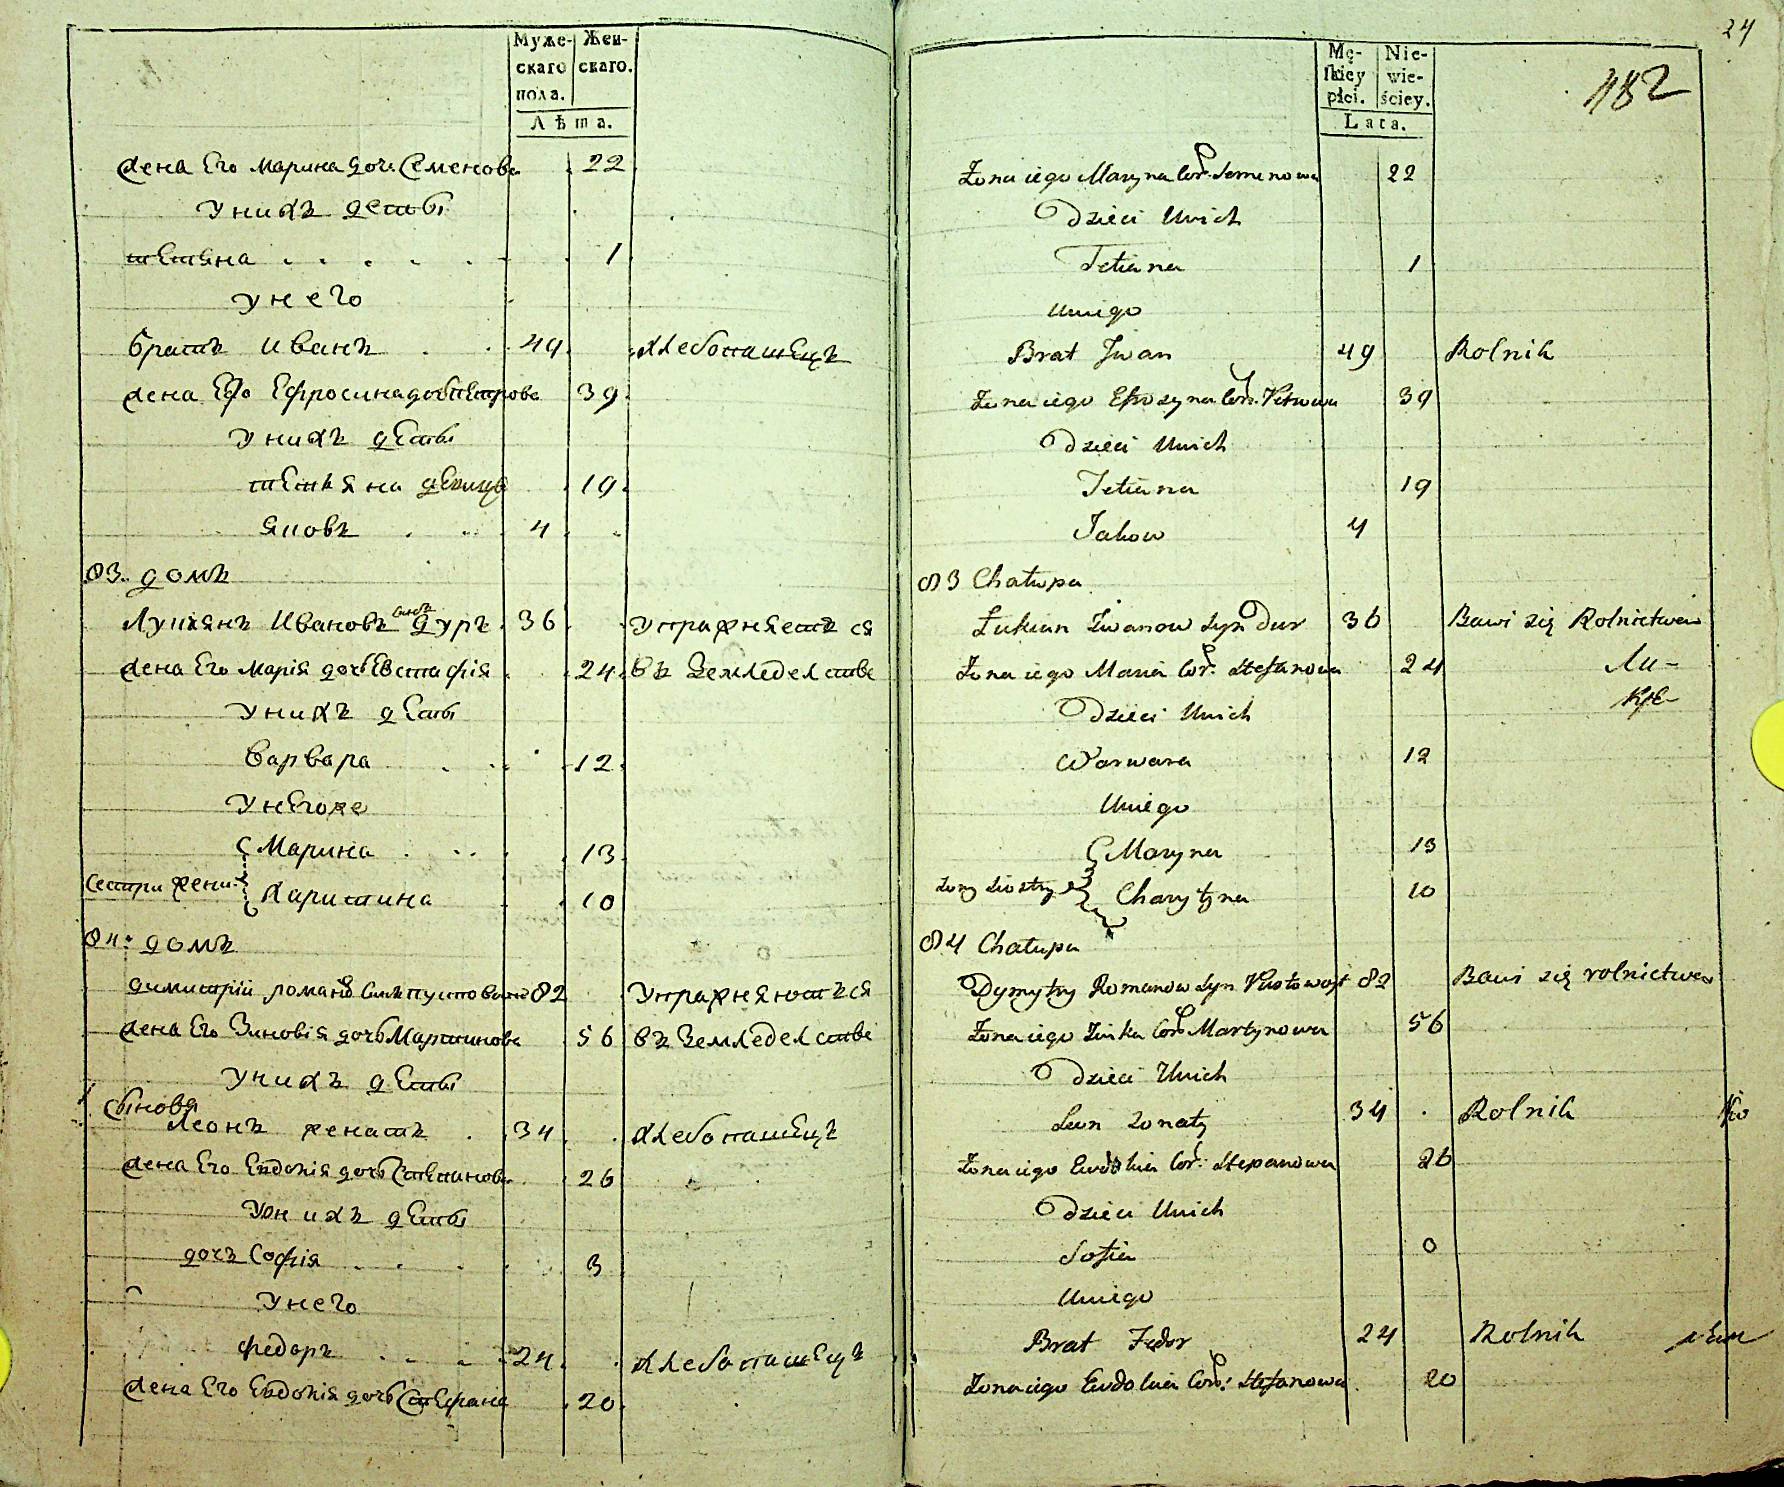 Муже- Жен-
скаго скаго.
пола.
Лѣта.
Жена Его Марина доч. Семенова 22
У нихъ дети
тетяна 1
у него
братъ Иванъ 49 Хлебопашецъ
Жена Его Ефросина дочь петрова 39
У нихъ дети
тетяна девица 19
Яковъ 4
83. домъ
Лукянъ Ивановъ синъ Дуръ 36 Упражняетъ ся
Жена Его Марія дочь Евстафія 24 въ Земледелстве
У нихъ дети
Варвара 12
У негоже
Марина 13
сестри жени Харитина 10
84. домъ
Димитрій романов синъ пустовит 82 Упражняютъся
Жена Его Зиновія дочь Мартинова 56 въ Земледелстве
У нихъ дети
Сыновя
Леонъ женатъ 34 Хлебопашецъ
Жена Его Евдокія дочь Степанова 26
У нихъ дети
дочъ Софія 3
У него
Федоръ 24 Хлебопашецъ
Жена Его Евдокія дочь Стефана 20
24
Mę- Nie-
skiey wie-
płci. ściey.
Lata.
182
Żona iego Maryna Cor. Semenowa 22
Dzieci Unich
Tetiana 1
Uniego
Brat Jwan 49 Rolnik
Żona iego Efrozyna Cor. Petrowa 39
Dzieci Unich
Tetiana 19
Jakow 4
83 Chałupa
Łukian Jwanow Syn Dur 36 Bawi się Rolnictwem
Żona iego Maria Cor. Stefanowa 24
Dzieci Unich
Warwara 12
Uniego
Maryna 13
Żony Siostry Charytyna 10
84 Chałupa
Dymytry Romanow Syn Pustowoyt 82 Bawi się rolnictwem
Żona iego Zinka Cor. Martynowa 56
Dzieci Unich
Leon Żonaty 34 Rolnik
Żona iego Ewdokia Cor. Stepanowa 26
Dzieci Unich
Sofia 0
Uniego
Brat Fedor 24 Rolnik
Żona iego Ewdokia Cor: Stefanowa 20